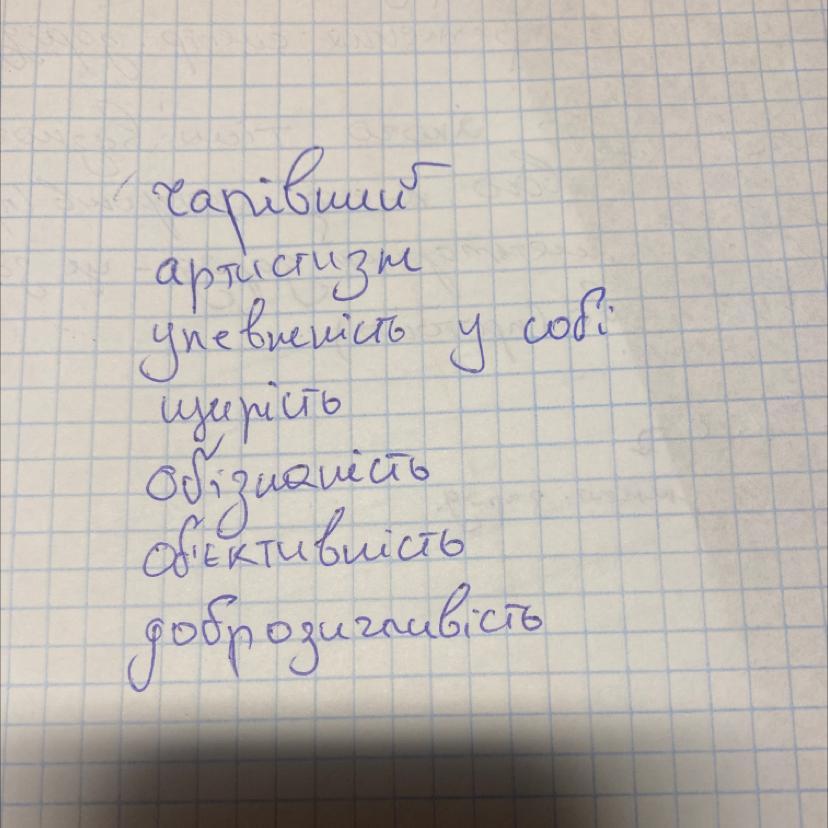 чарівний
артистизм
упевненість у собі
щирість
обізнаність
об'єктивність
доброзичливість